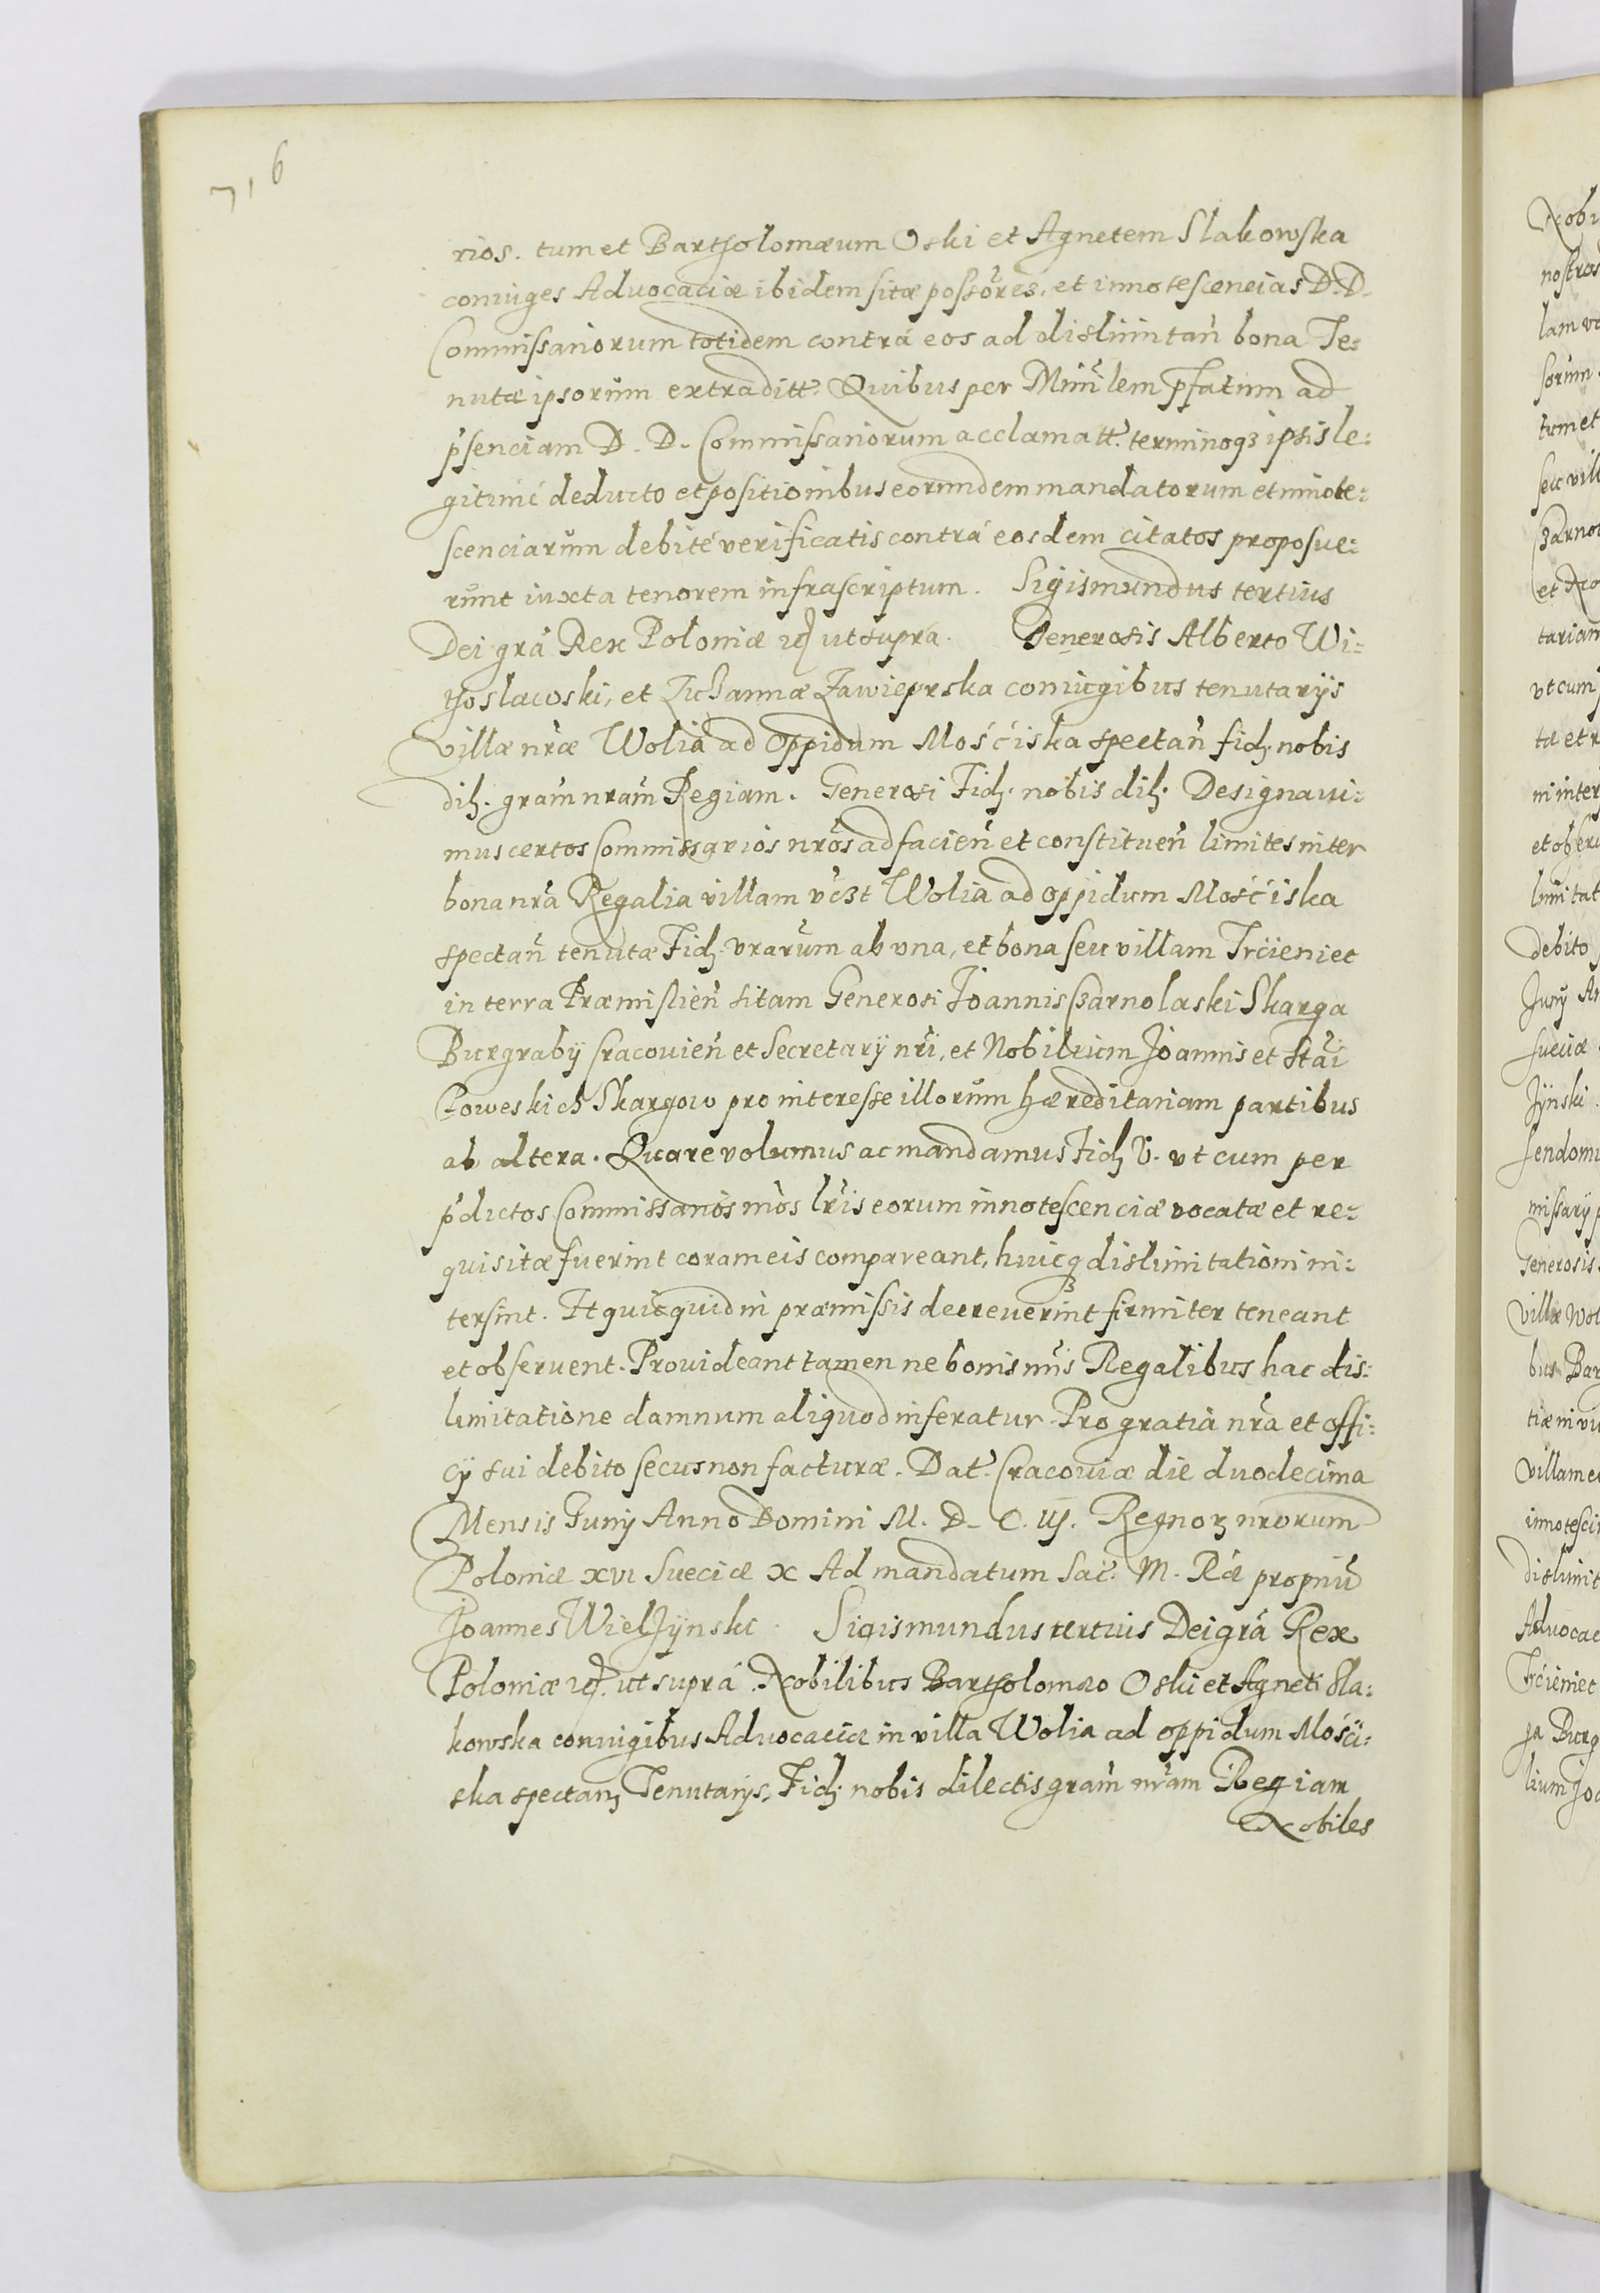 716
rios. tum et Bartholomæum Oski et Agnetem Slakowska
coniuges Aduocaciæ ibidem sitæ possores, et innotescencias D. D.
Commissariorum totidem contrá eos ad dislimitan̄ bona Te:
nutæ ipsorum extraditt. Quibus per Minilem pfatum ad
pſenciam D. D. Commissariorum acclamatt. terminoqȝ ipsis le:
gitimé deducto et positionibus eorumdem mandatorum et innote:
scenciarum debité verificatis contrá eosdem citatos proposue:
runt iuxta tenorem infrascriptum. Sigismundus tertius
Dei grã Rex Poloniæ ut supra. Generosis Alberto Wi:
thoslawski, et Zuchannæ Zawieprska coniugibus tenutarijs
villæ nræ Wolia ad oppidum Mośćiska spectan̄ fid. nobis
dil. gram nram Regiam. Generosi Fid. nobis dil. Designaui:
mus certos Commissarios nros ad facien̄ et constituen̄ limites inter
bona nra Regalia villam vczt Wolia ad oppidum Mośćiska
spectan̄ tenutæ Fid. vrarum ab vna, et bona seu villam Trcieniet
in terra Præmislien̄ sitam Generosi Joannis Czarnolaski Skarga
Burgrabÿ Cracouien̄ et Secretarÿ nri, et Nobilium Joannis et Stai
Poweskich Skargow pro interesse illorum hæreditariam partibus
ab altera. Quare volumus ac mandamus Fid. V. vt cum per
pdictos Commissarios nros lris eorum innotescenciæ vocatæ et re:
quisitæ fuerint coram eis compareant, huicqȝ dislimitationi in:
tersint. Et quicquid in præmissis decreuerint firmiter teneant
et obseruent. Prouideant tamen ne bonis nris Regalibus hac dis:
limitatione damnum aliquod inferatur. Pro gratia nra et offi:
cÿ sui debito secus non facturæ. Dat. Cracouiæ die duodecima
Mensis Junÿ Anno Domini M. D. C. iij. Regnorȝ nrorum
Poloniæ xvi Sueciæ x Ad mandatum Sac. M. Ræ propriu
Joannes Wielzÿnski. Sigismundus tertius Dei grã Rex
Poloniæ ut suprá. Nobilibus Bartholomæo Oski et Agneti Sla:
kowska coniugibus Aduocaciæ in villa Wolia ad oppidum Mośći:
ska spectan̄ Tenutarijs, Fid. nobis dilectis gram nram Regiam
Nobiles